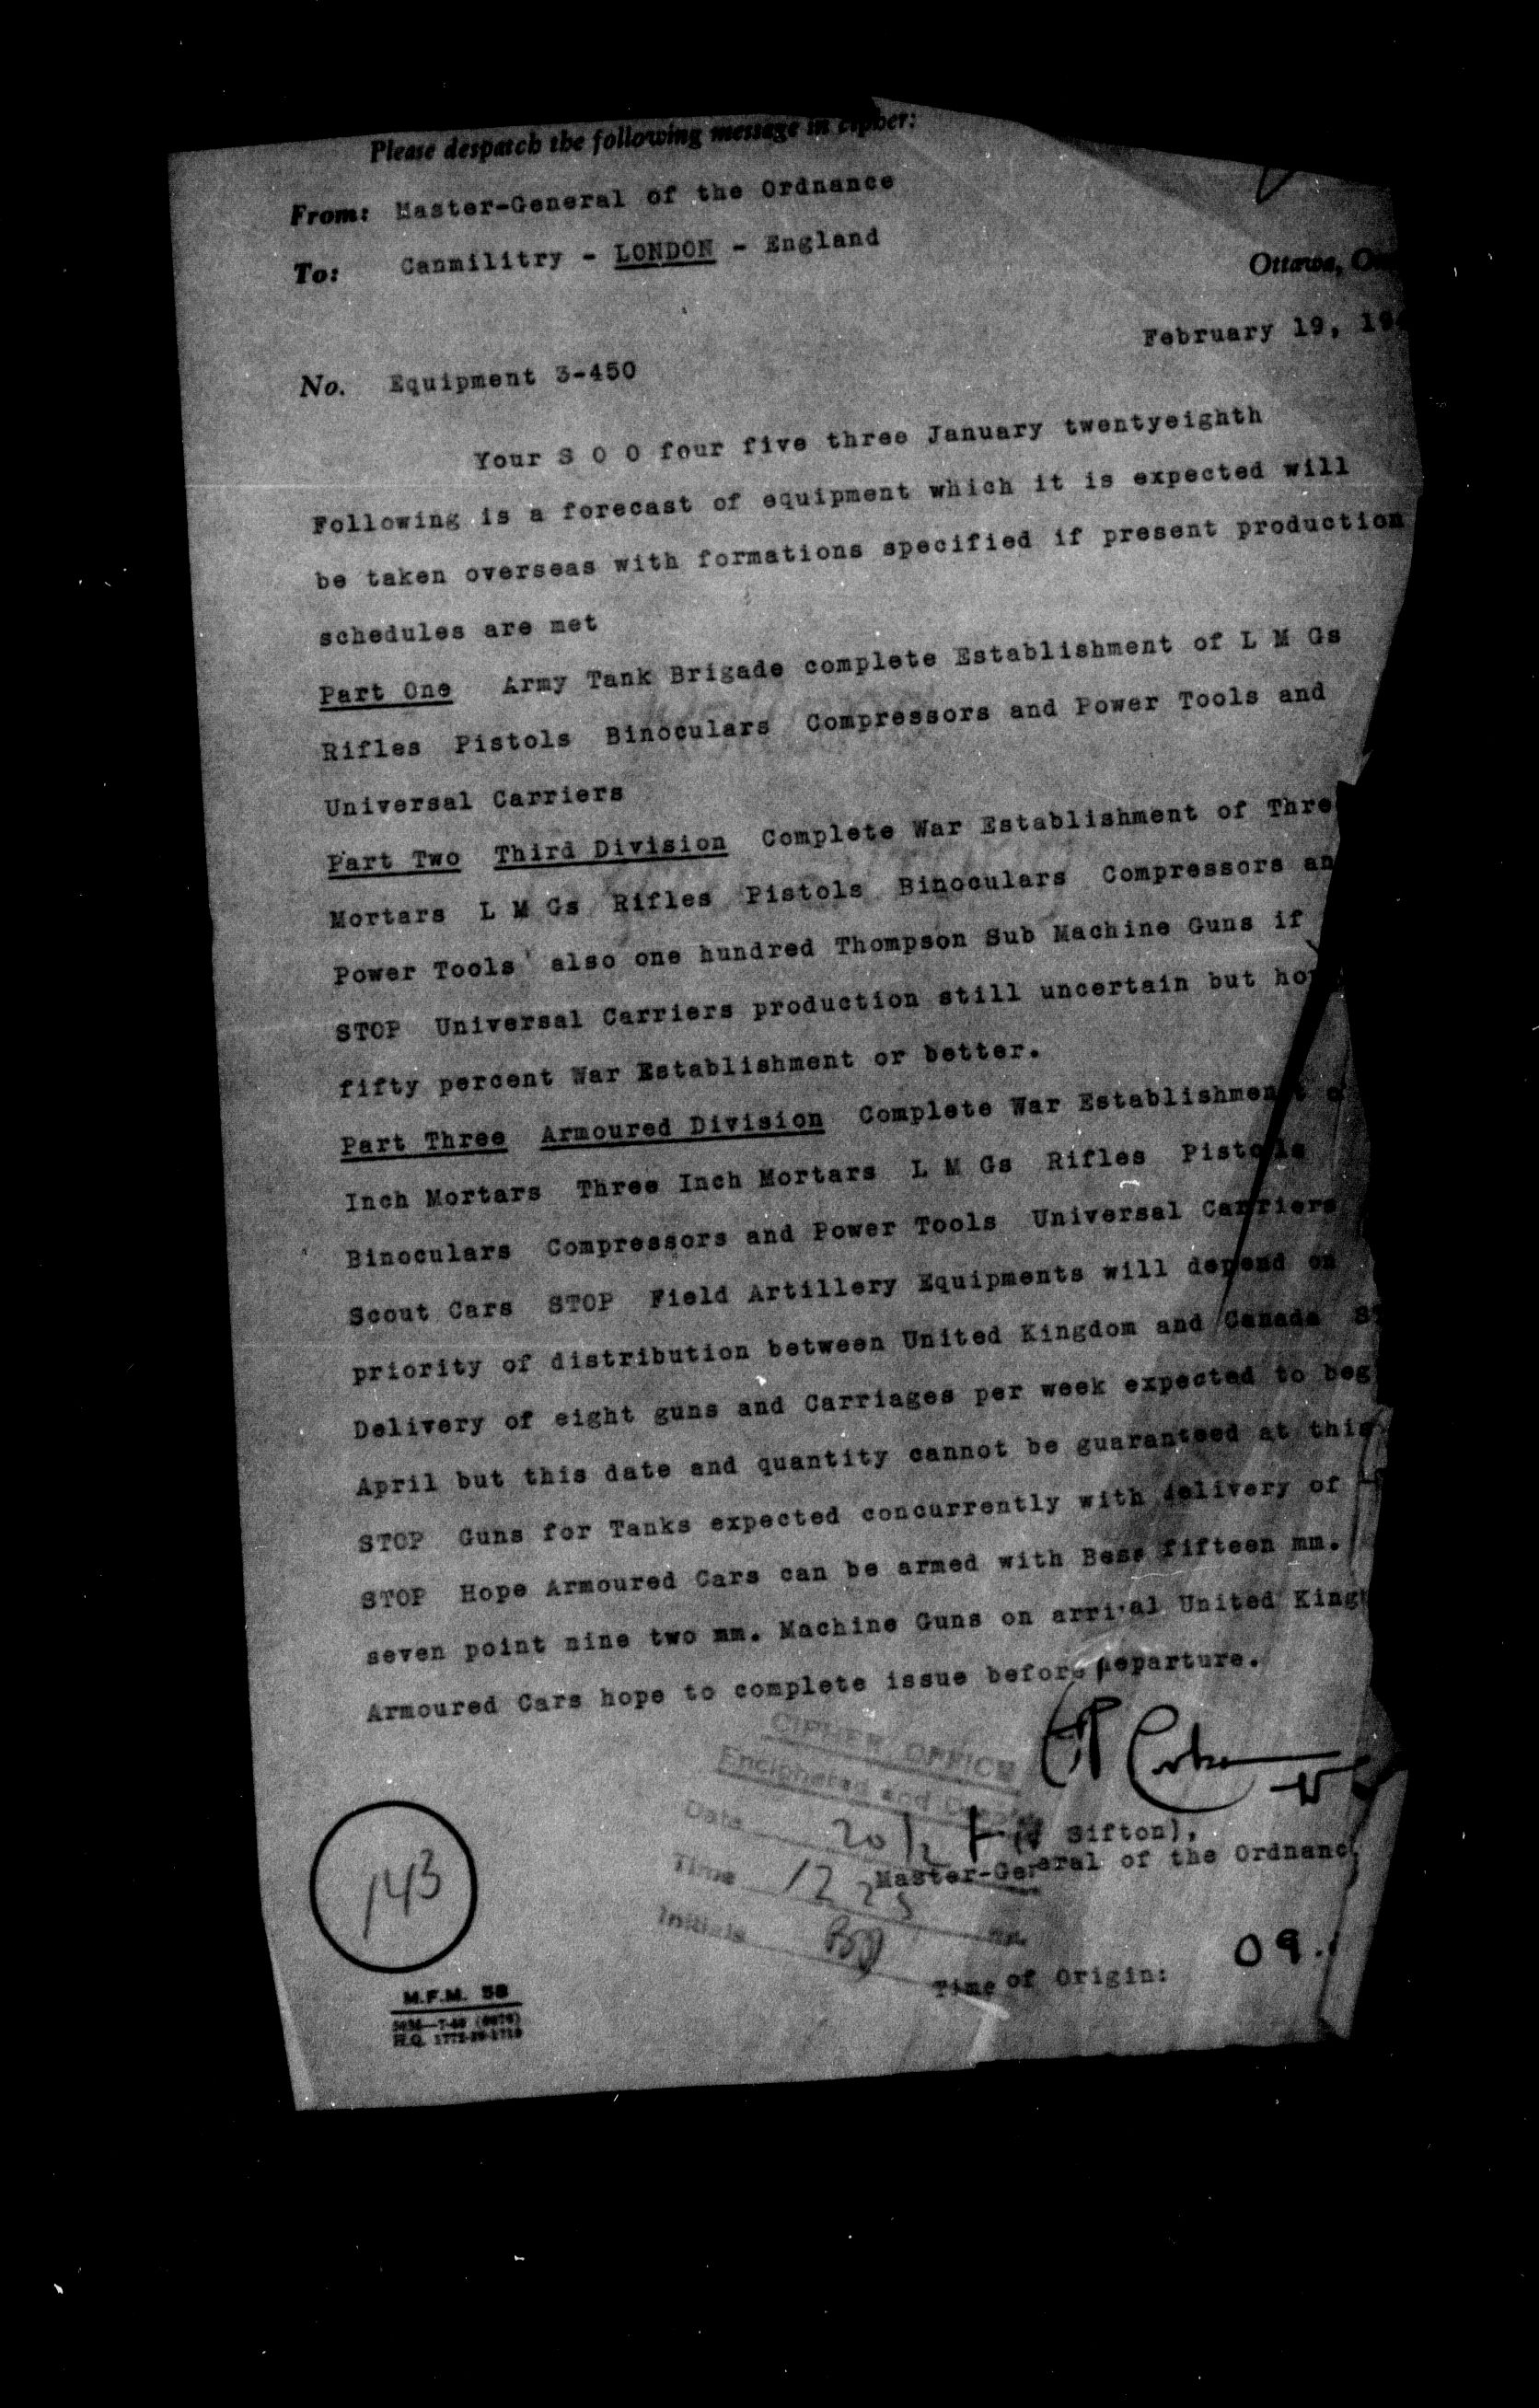 Please despatch the following message in cipher:
From: Master-General of the Ordnance
To: Canmilitry - LONDON - England
Ottawa,
February 19,
No. Equipment 3-450
Your S O O four five three January twentyeighth
Following is a forecast of equipment which it is expected will
be taken overseas with formations specified if present production
schedules are met
Part One Army Tank Brigade complete Establishment of L M Gs
Rifles Pistols Binoculars Compressors and Power Tools and
Universal Carriers
Part Two Third Division Complete War Establishment of Thre
Mortars L M Gs Rifles Pistols Binoculars Compressors an
Power Tools also one hundred Thompson Sub Machine Guns if
STOP Universal Carriers production still uncertain but ho
fifty percent War Establishment or better.
Part Three Armoured Division Complete War Establishment o
Inch Mortars Three Inch Mortars L M Gs Rifles Pistols
Binoculars Compressors and Power Tools Universal Carriers
Scout Cars STOP Field Artillery Equipments will depend on
priority of distribution between United Kingdom and Canada S
Delivery of eight guns and Carriages per week expected to beg
April but this date and quantity cannot be guaranteed at this
STOP Guns for Tanks expected concurrently with delivery of
STOP Hope Armoured Cars can be armed with Besa fifteen mm.
seven point nine two mm. Machine Guns on arrival United King
Armoured Cars hope to complete issue before departure.
CIPHER OFFICE
Enciphered and
Date 20/2
Sifton),
Master-General of the Ordnanc
Time 12 25
Initials
143
09.
Time of Origin:
M.F.M. 58
H.Q. 1772-39-1710